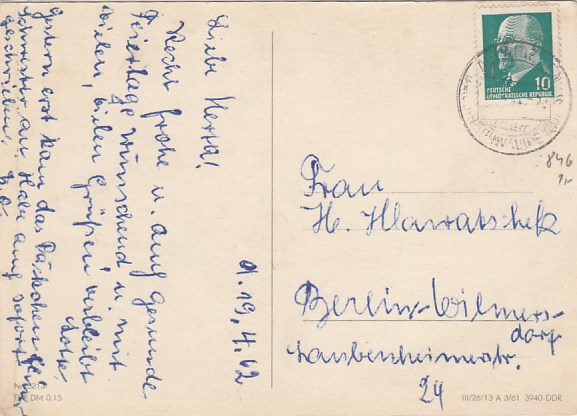 d. 19.4.62
Liebe Herta!
Recht frohe u. auch gesunde
Feiertage wünschend u. mit
vielen, vielen Grüßen verbleibt
Lotte
Gestern erst kam das Päckchen
Schwester an. Habe auch sofort
geschrieben.
DEUTSCHE
DEMOKRATISCHE REPUBLIK
10
846
Frau
H. Hlawatschek
Berlin-Wilmers-
dorf
Laubenheimerstr.
24
DM 0,15
III/26/13 A 3/61 3940-DDR